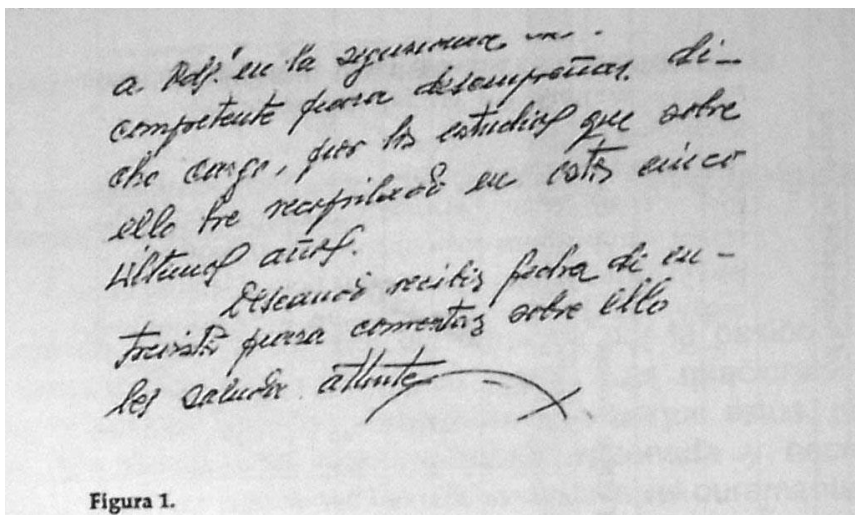 a Vdf. en la
competente para desempeñar di-
cho cargo, por los estudios que sobre
ello he recopilado en estos cinco
últimos años.
Deseando recibir fecha de en-
trevista para comentar sobre ello
les saluda attmte
Figura 1.